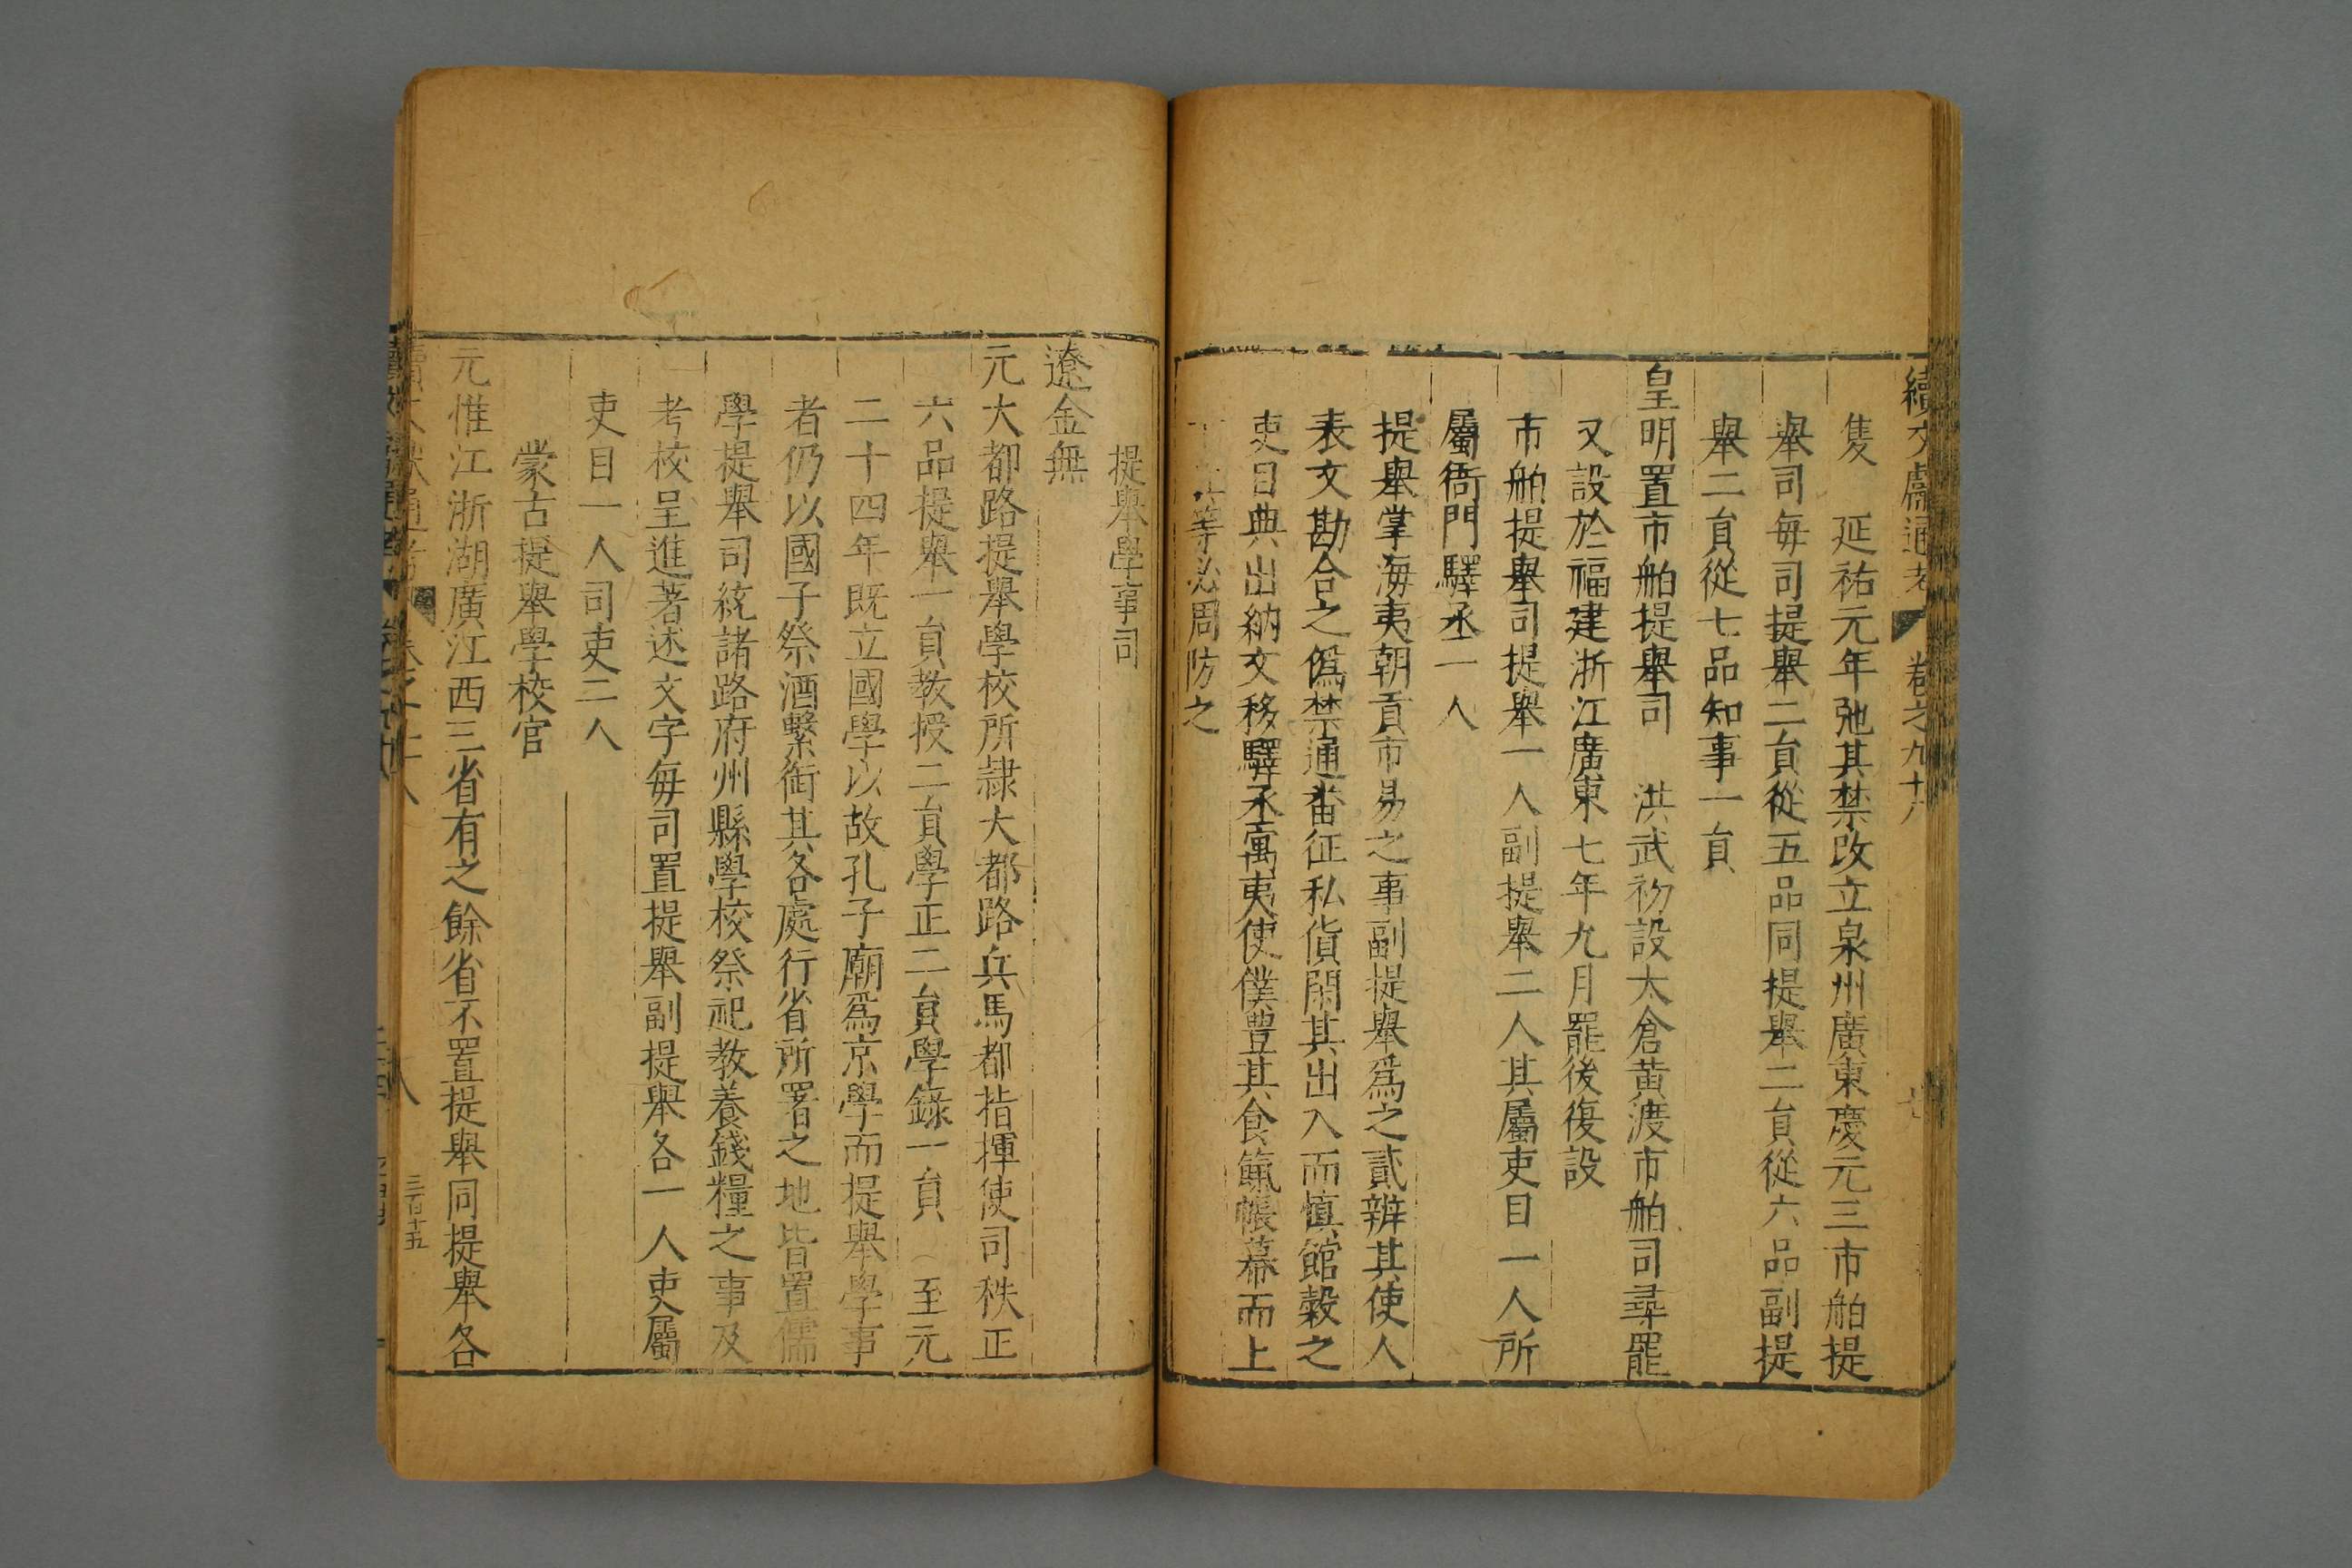 續文獻通考 卷之九十八
隻 延祐元年弛其禁改立泉州廣東慶元三市舶提
舉司每司提舉二員從五品同提舉二員從六品副提
舉二員從七品知事一員
皇明置市舶提舉司 洪武初設太倉黃渡市舶司尋罷
又設於福建浙江廣東七年九月罷後復設
市舶提舉司提舉一人副提舉二人其屬吏目一人所
屬衙門驛丞一人
提舉掌海夷朝貢市易之事副提舉爲之貳辨其使人
表文勘合之僞禁通番征私貨閑其出入而慎館穀之
吏目典出納文移驛丞寓夷使僕豊其食餼帳幕而上
等必周防之
提舉學事司
遼金無
元大都路提舉學校所隸大都路兵馬都指揮使司秩正
六品提舉一員教授二員學正二員學錄一員 至元
二十四年既立國學以故孔子廟爲京學而提舉學事
者仍以國子祭酒繫銜其各處行省所署之地皆置儒
學提舉司統諸路府州縣學校祭祀教養錢糧之事及
考校呈進著述文字每司置提舉副提舉各一人吏屬
吏目一人司吏二人
蒙古提舉學校官
元惟江浙湖廣江西三省有之餘省不置提舉同提舉各
八
三百十五